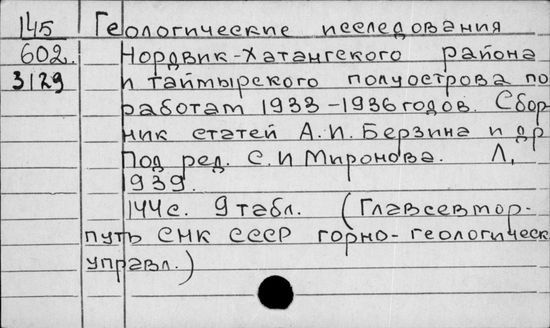 145 Геологические исследования
602. Нордвик-Хатангского района
3129 и таймырского полуострова по
работам 1933-1936 годов. Сбор-
ник статей А.И. Берзина и др
Под ред. С.И Миронова. Л,
1939.
144с. 9 табл. (Главсевмор-
путь СНК СССР горно-геологическ
управл.)